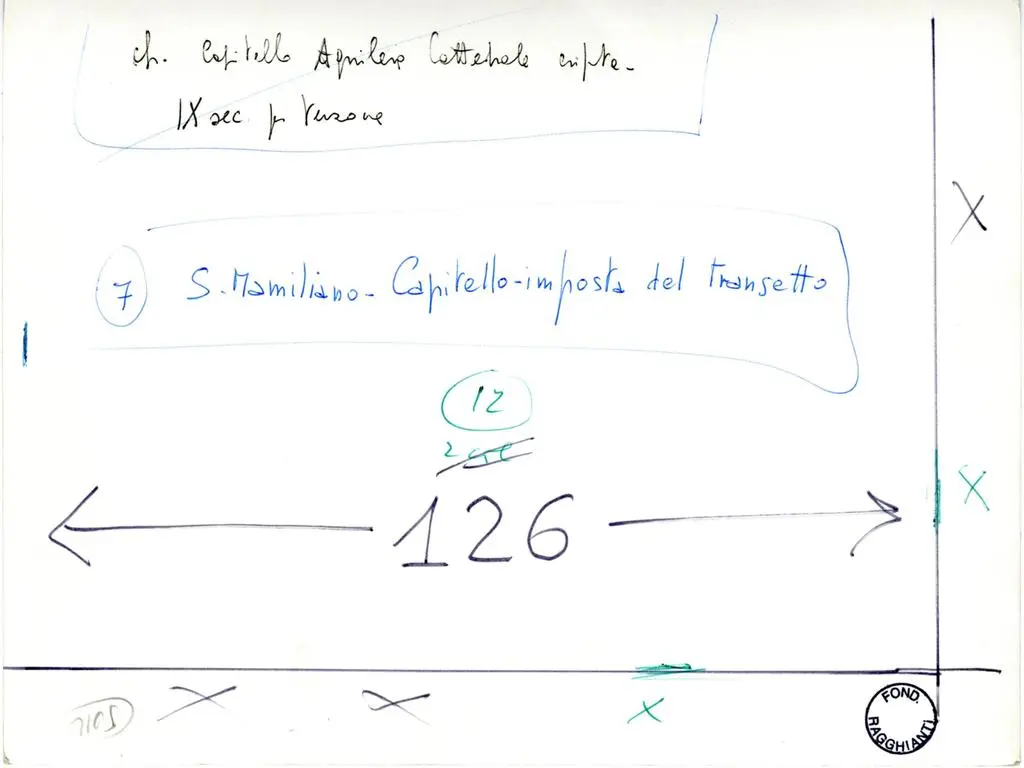 cfr. Capitello Aquileia Cattedrale cripta -
IX sec. per Verzone
7 S. Mamiliano - Capitello-imposta del transetto
12
2
126
X
X
X
X
X
FOND.
RAGGHIANTI